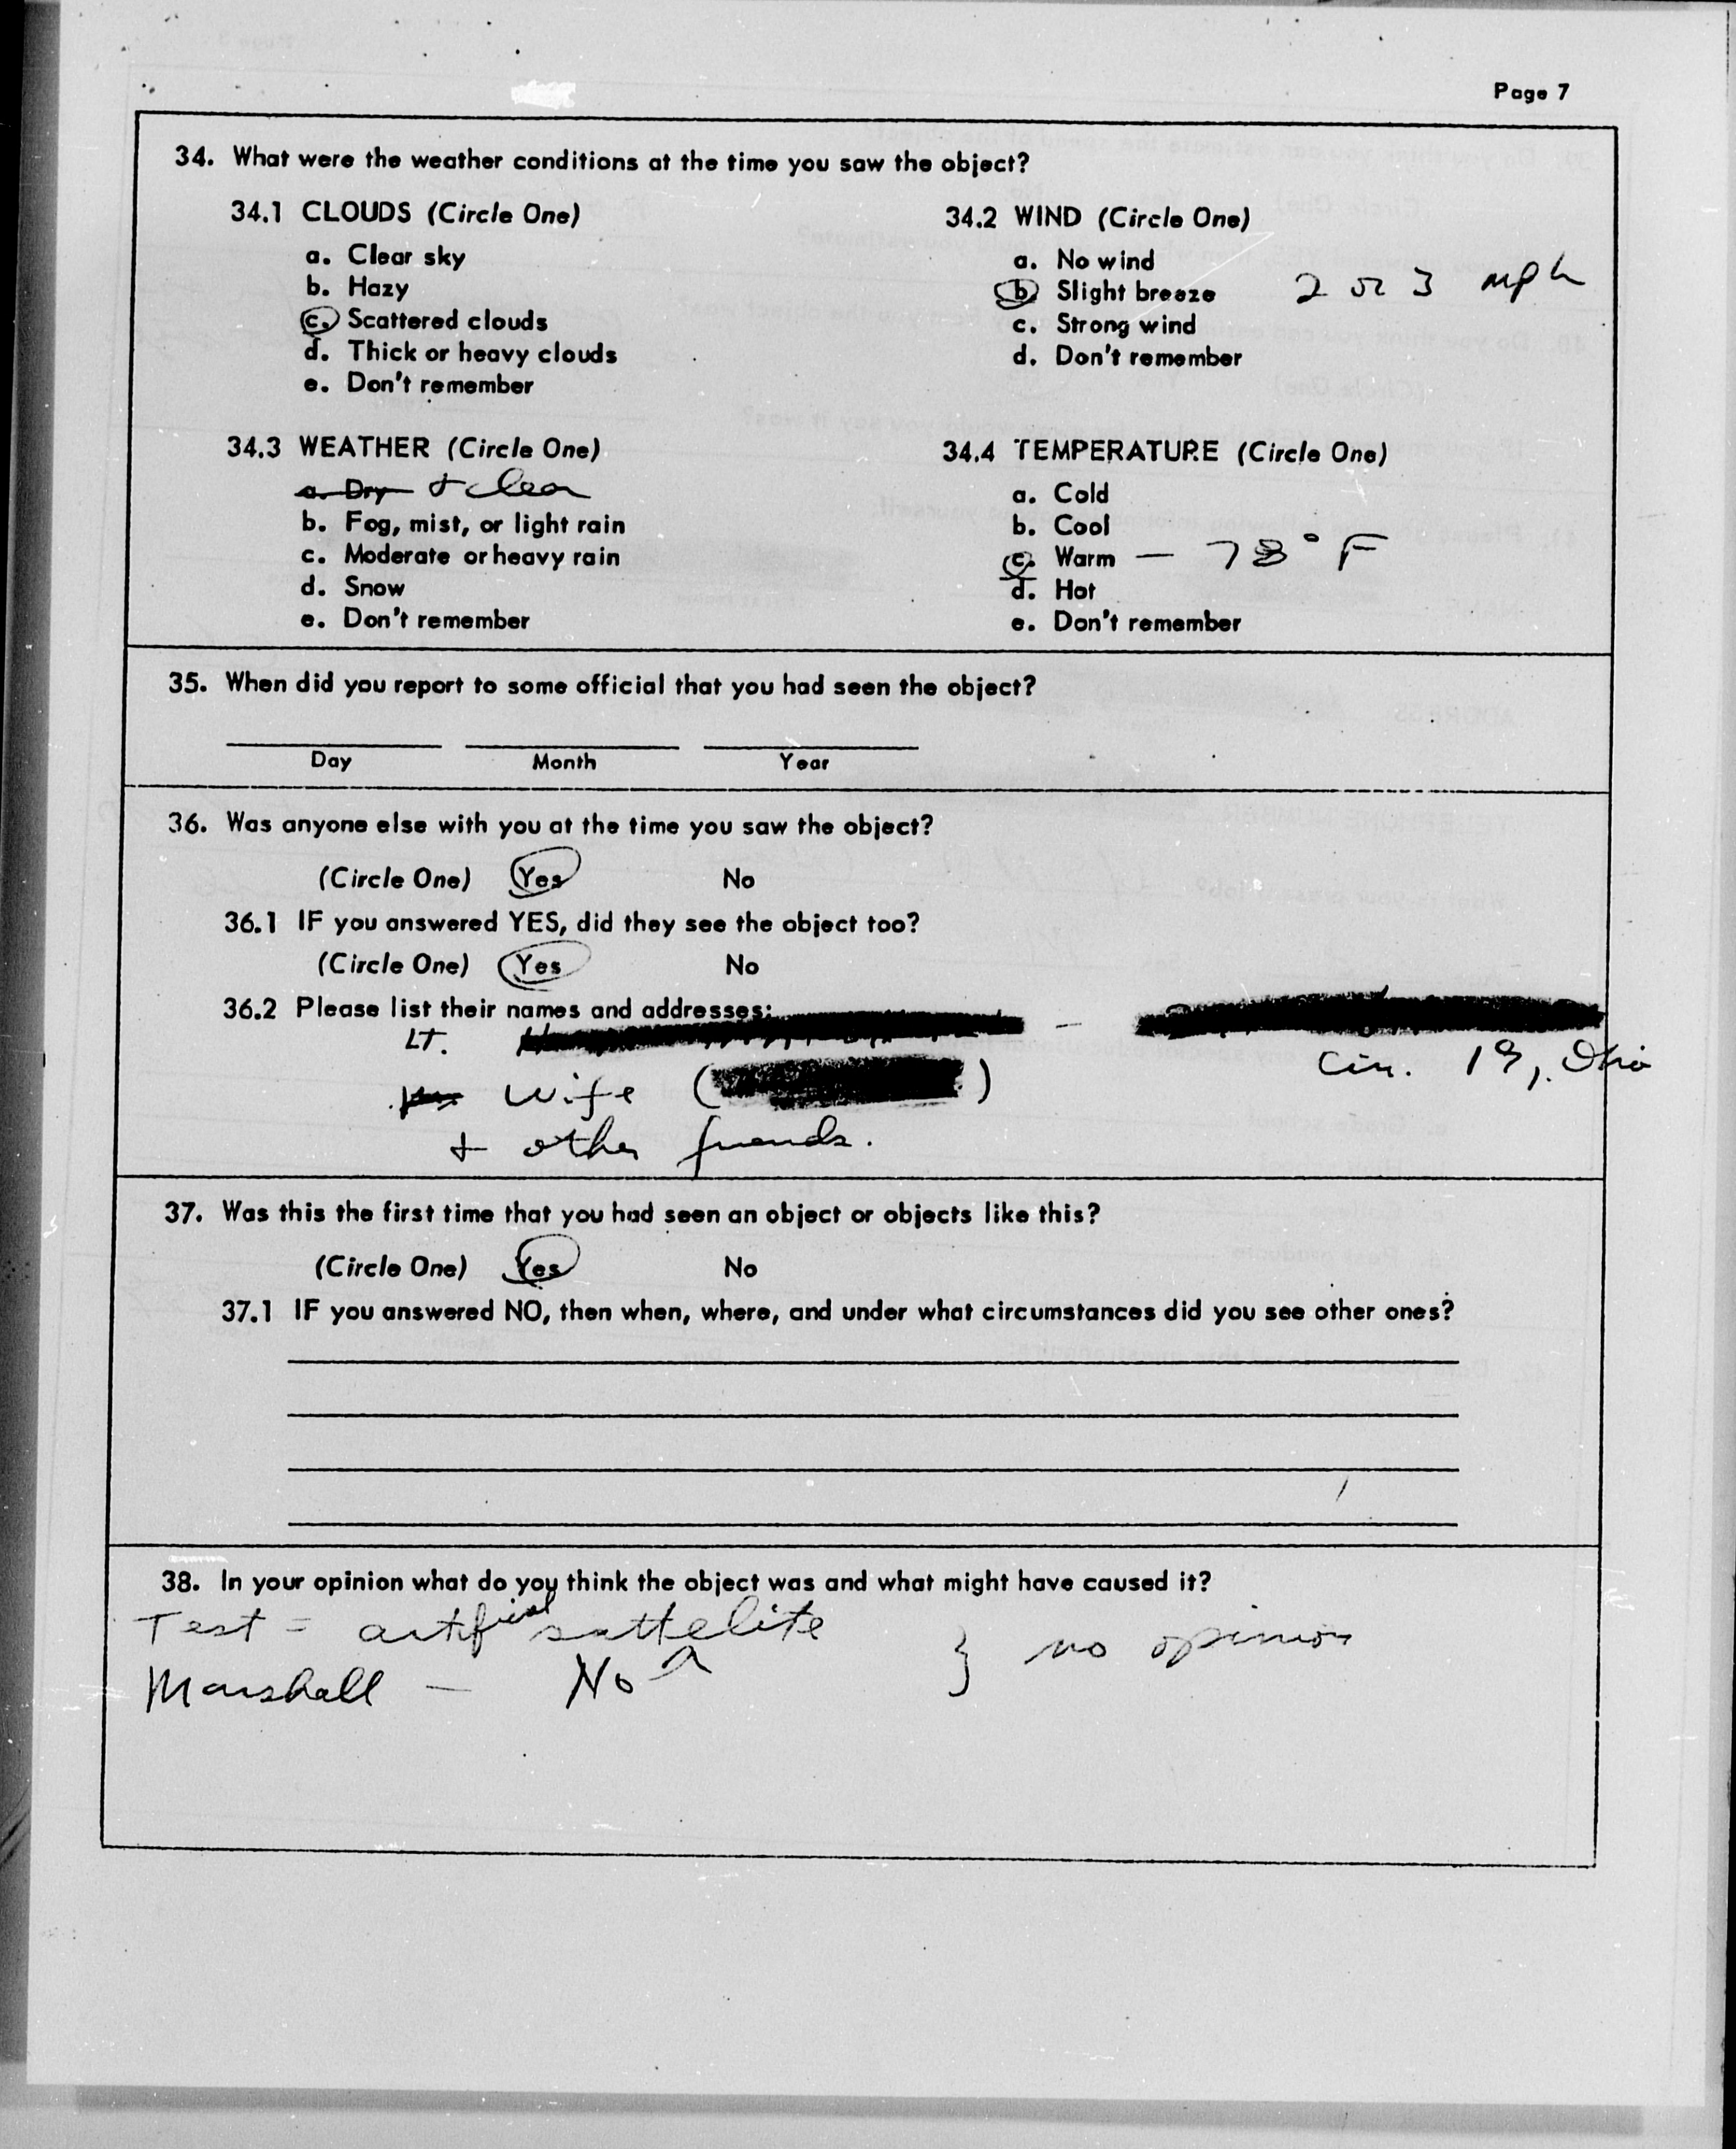 Page 7
34. What were the weather conditions at the time you saw the object?
34.1 CLOUDS (Circle One)
a. Clear sky
b. Hazy
c. Scattered clouds
d. Thick or heavy clouds
e. Don't remember
34.2 WIND (Circle One)
a. No wind
b. Slight breeze 2 or 3 mph
c. Strong wind
d. Don't remember
34.3 WEATHER (Circle One)
a. Dry + clear
b. Fog, mist, or light rain
c. Moderate or heavy rain
d. Snow
e. Don't remember
34.4 TEMPERATURE (Circle One)
a. Cold
b. Cool
c. Warm — 78° F
d. Hot
e. Don't remember
35. When did you report to some official that you had seen the object?
Day Month Year
36. Was anyone else with you at the time you saw the object?
(Circle One) Yes No
36.1 IF you answered YES, did they see the object too?
(Circle One) Yes No
36.2 Please list their names and addresses:
LT. —
Cin. 19, Ohio
wife ( )
+ other friends.
37. Was this the first time that you had seen an object or objects like this?
(Circle One) Yes No
37.1 IF you answered NO, then when, where, and under what circumstances did you see other ones?
38. In your opinion what do you think the object was and what might have caused it?
Test = artificial sattelite
Marshall — No } no opinion